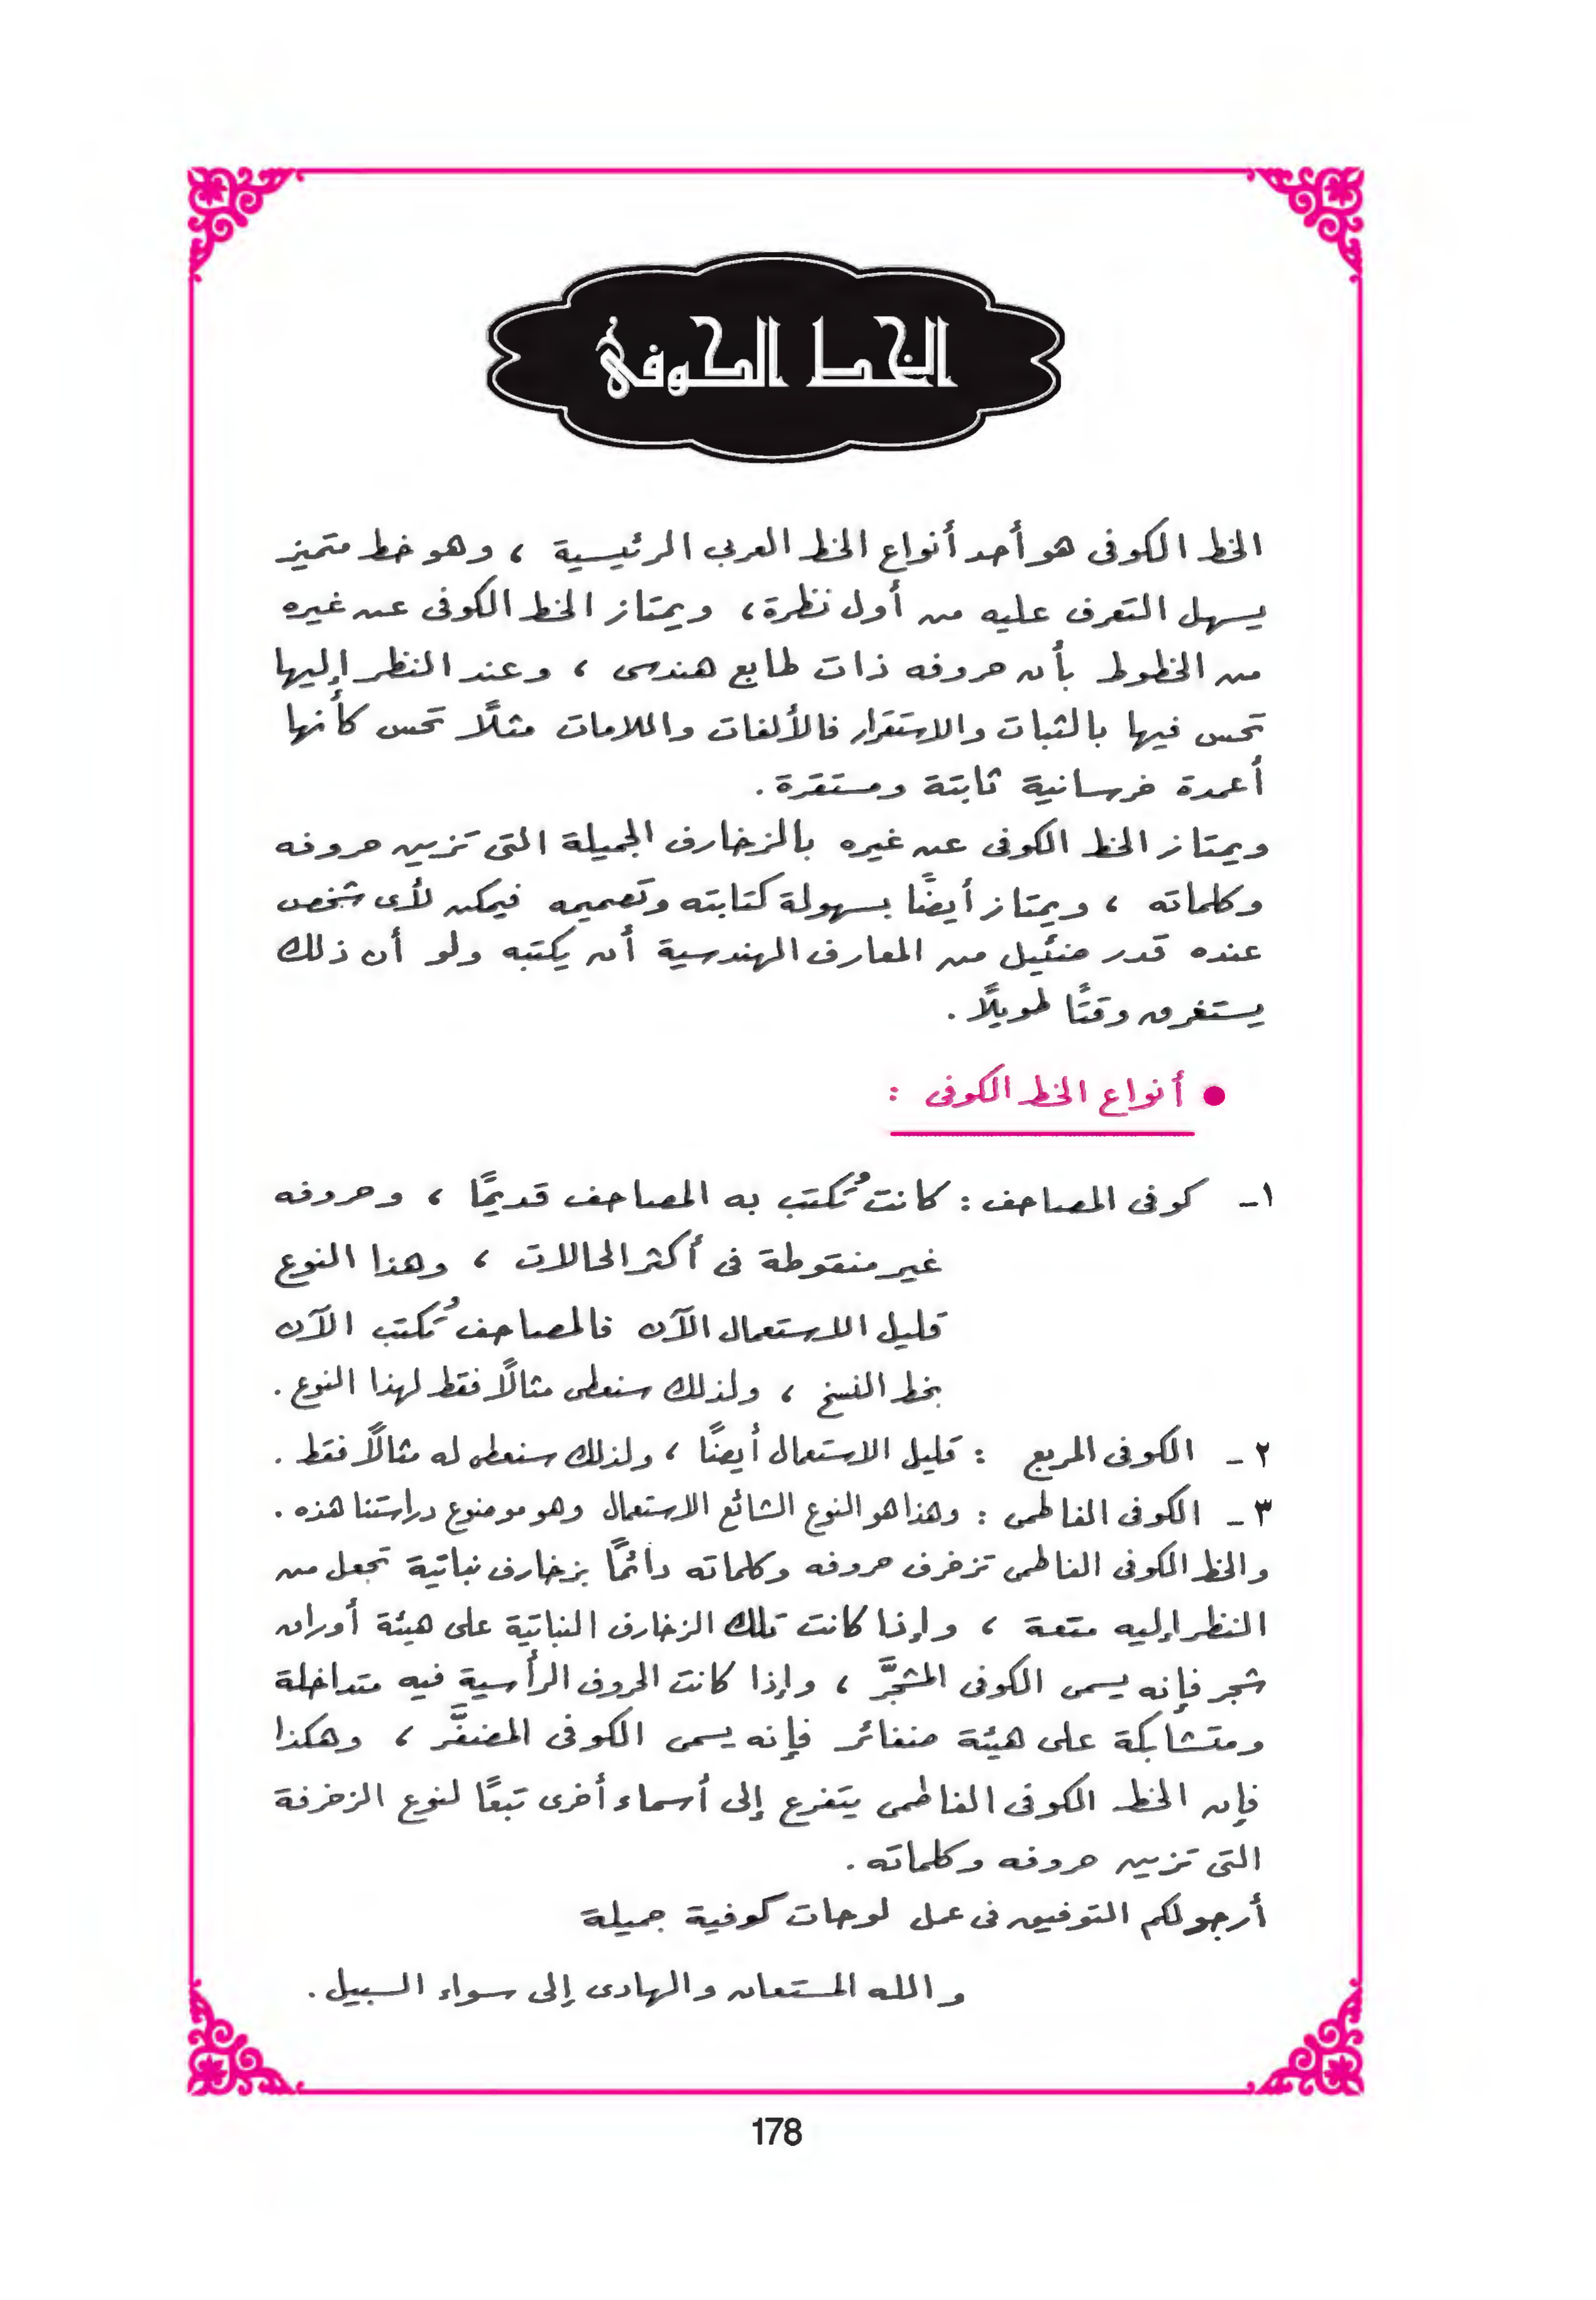 الخط الكوفى
الخط الكوفى هو أحد أنواع الخط العربى الرئيسية ، وهو خط متميز
يسهل التعرف عليه من أول نظرة ، ويمتاز الخط الكوفى عن غيره
من الخطوط بأن حروفه ذات طابع هندسى ، وعند النظر إليها
تحس فيها بالثبات والاستقرار فالألفات واللامات مثلًا تحس كأنها
أعمدة خرسانية ثابتة ومستقرة .
ويمتاز الخط الكوفى عن غيره بالزخارف الجميلة التى تزين حروفه
وكلماته ، ويمتاز أيضًا بسهولة كتابته وتصميمه فيمكن لأى شخص
عنده قدر ضئيل من المعارف الهندسية أن يكتبه ولو أن ذلك
يستغرق وقتًا طويلًا .
● أنواع الخط الكوفى :
١- كوفى المصاحف : كانت تُكتب به المصاحف قديمًا ، وحروفه
غير منقوطة فى أكثر الحالات ، وهذا النوع
قليل الاستعمال الآن فالمصاحف تُكتب الآن
بخط النسخ ، ولذلك سنعطى مثالًا فقط لهذا النوع .
٢- الكوفى المربع : قليل الاستعمال أيضًا ، ولذلك سنعطى له مثالًا فقط .
٣- الكوفى الفاطمى : وهذا هو النوع الشائع الاستعمال وهو موضوع دراستنا هذه .
والخط الكوفى الفاطمى تزخرف حروفه وكلماته دائمًا بزخارف نباتية تجعل من
النظر إليه متعة ، وإذا كانت تلك الزخارف النباتية على هيئة أوراق
شجر فإنه يسمى الكوفى المشجَّر ، وإذا كانت الحروف الرأسية فيه متداخلة
ومتشابكة على هيئة ضفائر فإنه يسمى الكوفى المضفَّر ، وهكذا
فإن الخط الكوفى الفاطمى يتفرع إلى أسماء أخرى تبعًا لنوع الزخرفة
التى تزين حروفه وكلماته .
أرجو لكم التوفيق فى عمل لوحات كوفية جميلة
والله المستعان والهادى إلى سواء السبيل .
178